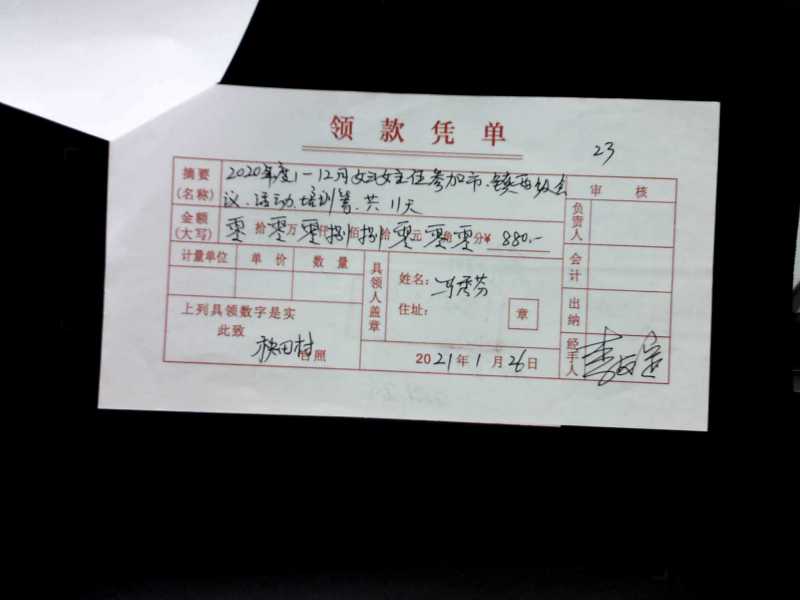 领款凭单
23
摘要(名称) 2020年度1-12月妇女主任参加市、镇两级会
议、活动、培训等、共11天
审核
金额(大写) 零拾零万零仟捌佰捌拾零元零角零分¥ 880.-
负责人
计量单位 单价 数量
具领人盖章
姓名:
住址:
章
会计
出纳
上列具领数字是实
此致
秧田村 台照
2021年1月26日
经手人